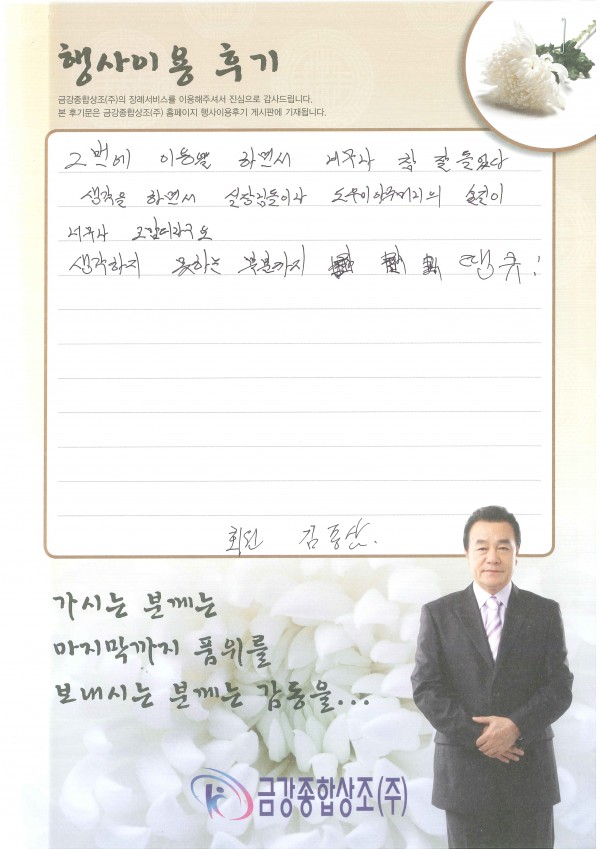 행사이용 후기
금강종합상조(주)의 장례서비스를 이용해주셔서 진심으로 감사드립니다.
본 후기문은 금강종합상조(주) 홈페이지 행사이용후기 게시판에 기재됩니다.
그번에 이용을 하면서 너무나 참 잘 들었다
생각을 하면서 실장님들이나 도우미아주머니의 손길이
너무나 고맙더라구요
생각하지 못하는 부분까지 땡큐!
회원 김
가시는 분께는
마지막까지 품위를
보내시는 분께는 감동을...
금강종합상조(주)